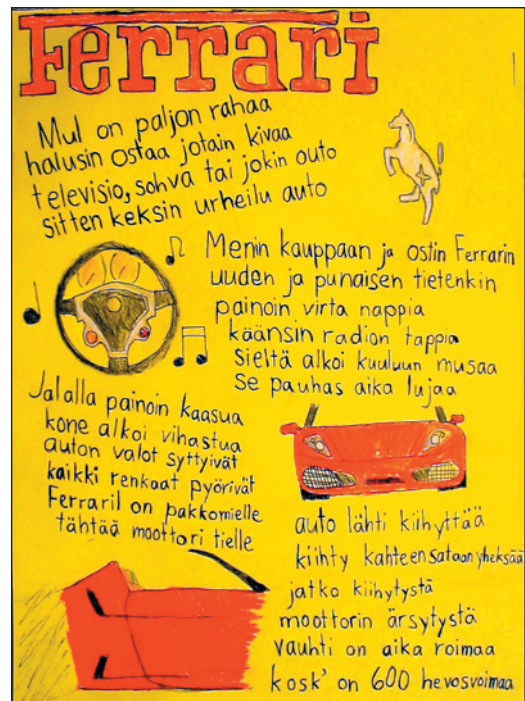 Ferrari
Mul on paljon rahaa
halusin ostaa jotain kivaa
televisio, sohva tai jokin outo
sitten keksin urheilu auto
Menin kauppaan ja ostin Ferrarin
uuden ja punaisen tietenkin
painoin virta nappia
käänsin radion tappia
sieltä alkoi kuuluun musaa
se pauhas aika lujaa
Jalalla painoin kaasua
kone alkoi vihastua
auton valot syttyivät
kaikki renkaat pyörivät
Ferraril on pakkomielle
tähtää moottori tielle
auto lähti kiihyttää
kiihty kahteensataanyheksää
jatko kiihytystä
moottorin ärsytystä
vauhti on aika roimaa
kosk' on 600 hevosvoimaa